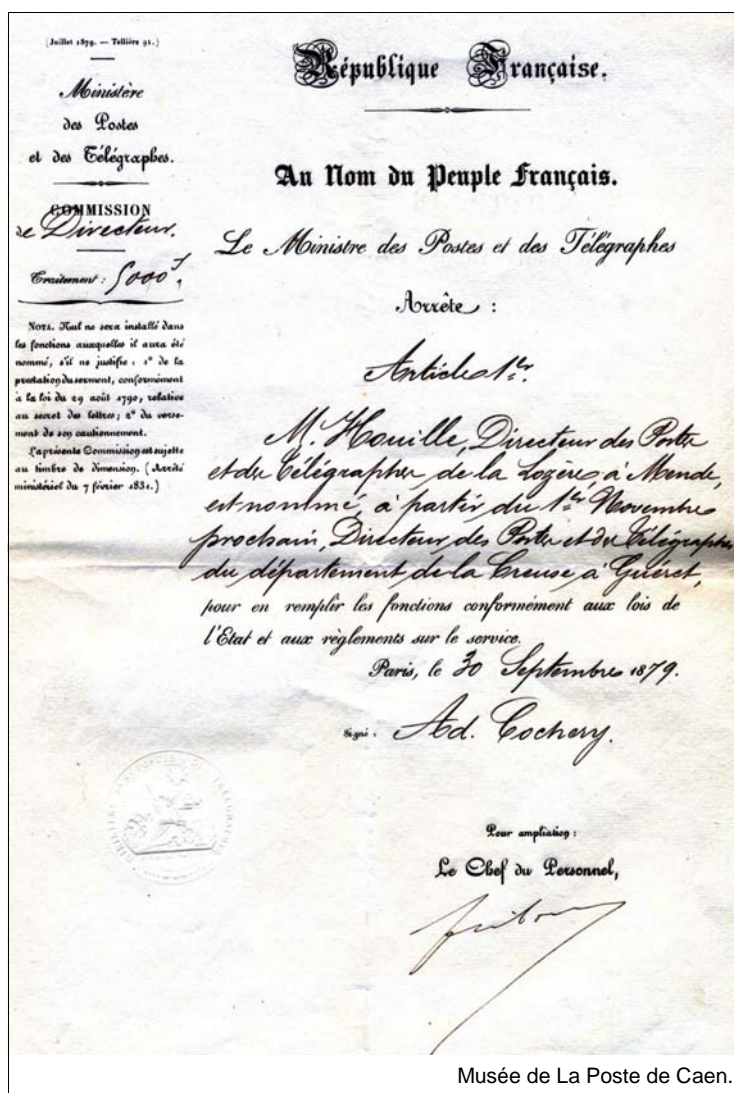 (Juillet 1879. — Tellière 91.)
Ministère
des Postes
et des Télégraphes.
COMMISSION
de Directeur.
Traitement : 5000 f.
NOTA. Nul ne sera installé dans
les fonctions auxquelles il aura été
nommé, s'il ne justifie : 1° de la
prestation du serment, conformément
à la loi du 29 août 1790, relative
au secret des lettres ; 2° du verse-
ment de son cautionnement.
La présente Commission est sujette
au timbre de dimension. (Arrêté
ministériel du 7 février 1831.)
République Française.
Au Nom du Peuple Français.
Le Ministre des Postes et des Télégraphes
Arrête :
Article 1er.
M. Houille, Directeur des Postes
et des Télégraphes de la Lozère, à Mende,
est nommé, à partir du 1er Novembre
prochain, Directeur des Postes et des Télégraphes
du département de la Creuse à Guéret,
pour en remplir les fonctions conformément aux lois de
l'Etat et aux règlements sur le service.
Paris, le 30 Septembre 1879.
Signé : Ad. Cochery.
Pour ampliation :
Le Chef du Personnel,
Musée de La Poste de Caen.